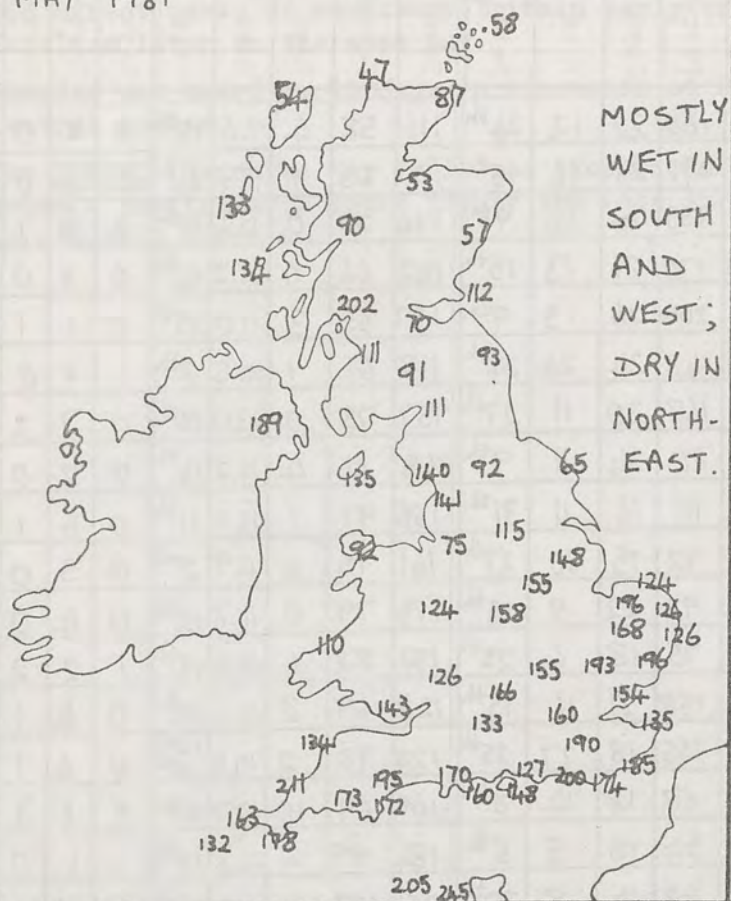 MAY 1981
58
47
54
87
MOSTLY
WET IN
SOUTH
AND
WEST;
DRY IN
NORTH-
EAST.
53
138
90
57
134
112
202
70
111
91
93
111
189
135
140
92
65
141
92
75
115
148
155
124
124
158
196
126
168
126
110
126
155
193
196
166
154
143
133
160
135
134
190
211
195
170
127
200
185
174
163
173
172
160
148
132
178
205
245